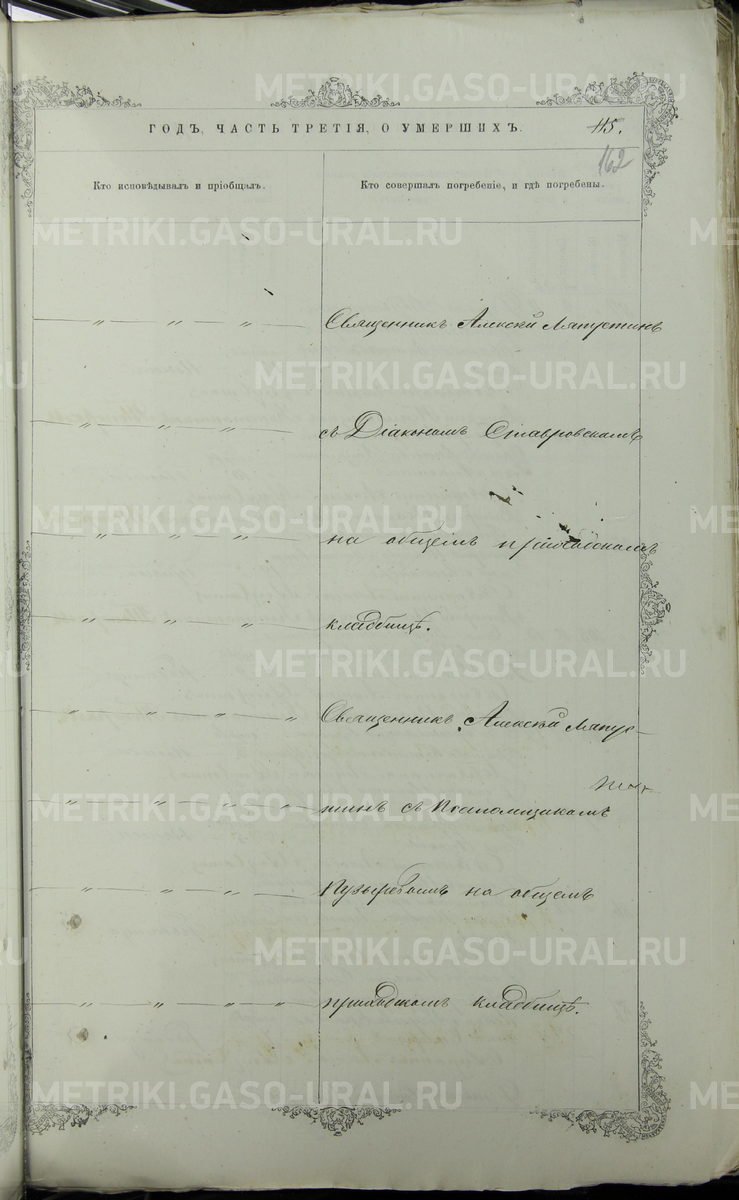 METRIKI.GASO-URAL.RU
ГОДЪ, ЧАСТЬ ТРЕТІЯ, О УМЕРШИХЪ. 115.
162
Кто исповѣдывалъ и пріобщалъ. Кто совершалъ погребеніе, и гдѣ погребены.
— „ — „ — „ — Священникъ Алексій Ляпустинъ
— „ — „ — „ — съ Діакономъ Ставровскимъ
— „ — „ — „ — на общемъ приходскомъ
— „ — „ — „ — кладбищѣ.
„ — „ — „ — „ Священникъ Алексій Ляпус-
„ — „ — „ — „ — тинъ съ Псаломщикомъ
— „ — „ — „ — Пузыревымъ на общемъ
„ — „ — „ — „ приходскомъ кладбищѣ.